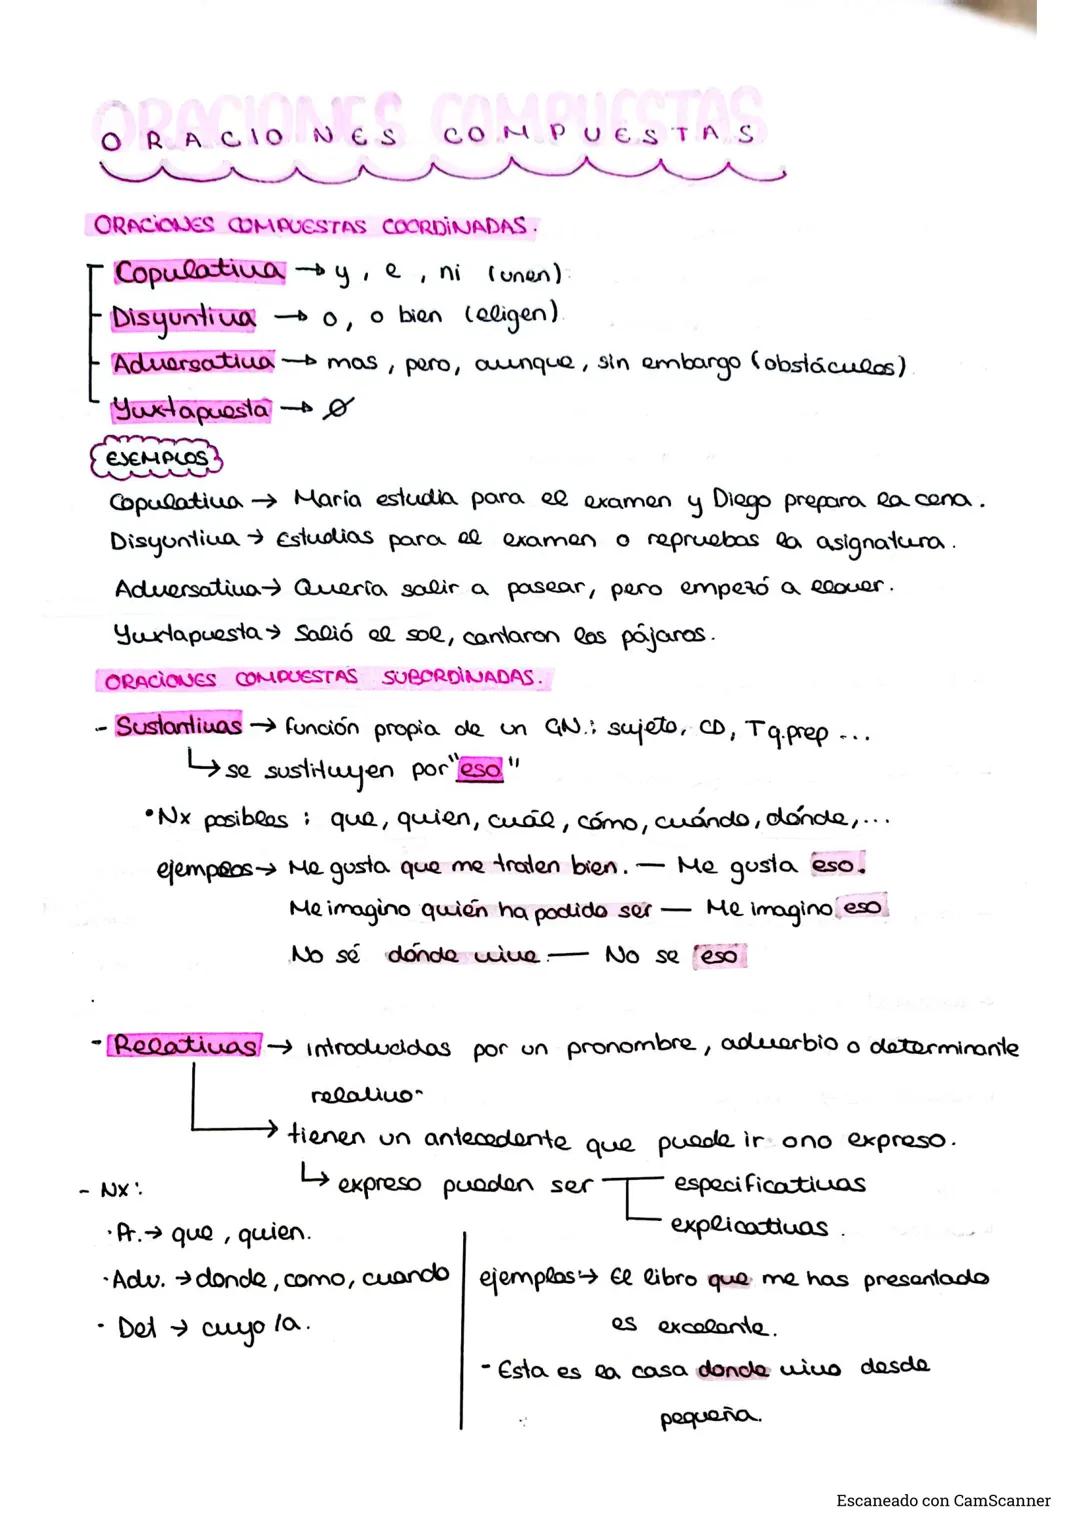 ORACIONES COMPUESTAS
ORACIONES COMPUESTAS COORDINADAS.
Copulativa → y, e, ni (unen).
Disyuntiva → o, o bien (eligen).
Adversativa → mas, pero, aunque, sin embargo (obstáculos).
Yuxtapuesta → Ø
EJEMPLOS
Copulativa → María estudia para el examen y Diego prepara la cena.
Disyuntiva → Estudias para el examen o repruebas la asignatura.
Adversativa → Quería salir a pasear, pero empezó a llover.
Yuxtapuesta → Salió el sol, cantaron los pájaros.
ORACIONES COMPUESTAS SUBORDINADAS.
- Sustantivas → función propia de un GN.: sujeto, CD, Tq.prep ...
↳ se sustituyen por "eso"
• Nx posibles: que, quien, cuál, cómo, cuándo, dónde,...
ejemplos → Me gusta que me traten bien. — Me gusta eso.
Me imagino quién ha podido ser — Me imagino eso
No sé dónde vive. — No se eso
- Relativas → introducidas por un pronombre, adverbio o determinante
relativo.
→ tienen un antecedente que puede ir o no expreso.
↳ expreso pueden ser especificativas
explicativas.
- Nx:
· Pr. → que, quien.
· Adv. → donde, como, cuando
· Det → cuyo/a.
ejemplos → El libro que me has presentado
es excelente.
- Esta es la casa donde vivo desde
pequeña.
Escaneado con CamScanner